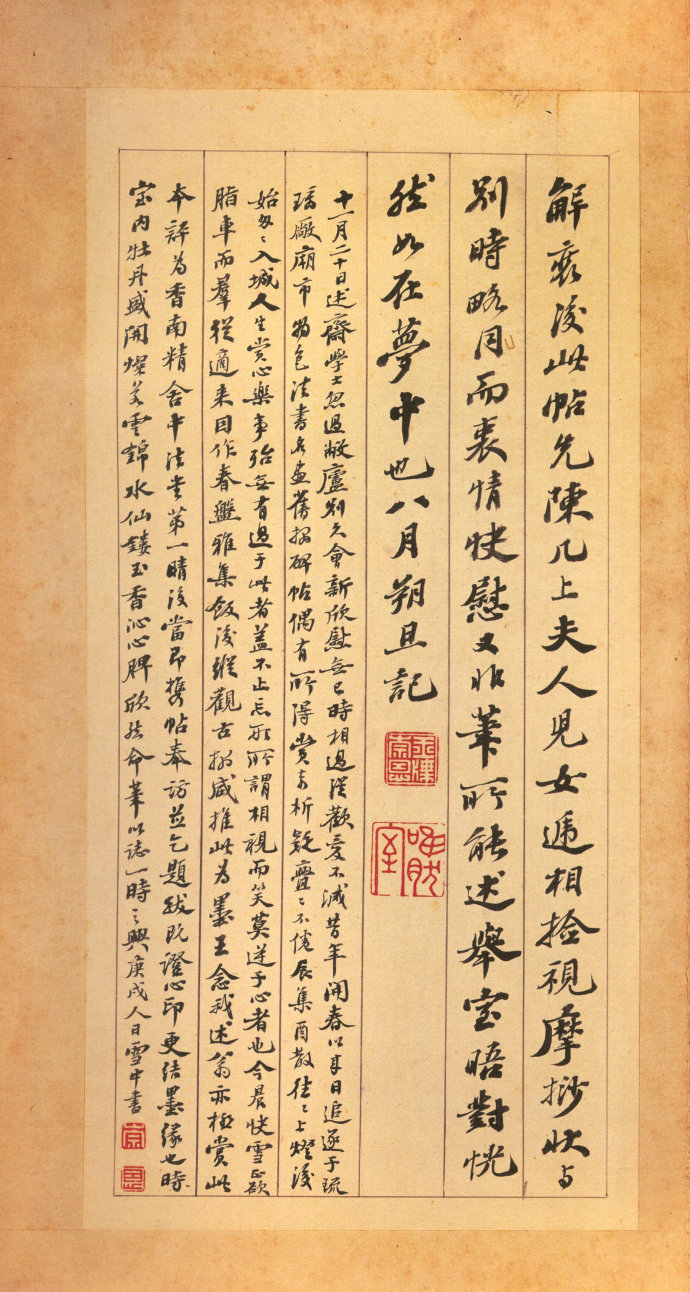 解裝後此帖先陳几上夫人兒女遞相撿視摩挱狀与
別時略同而衷情快慰又非筆所能述舉室晤對恍
然如在夢中也八月朔旦記
十一月二十日述齋學士忽過敝廬別久會新欣慰無已時相過從歡愛不減昔年開春以來日追逐于琉
璃廠廟市物色法書名畫舊搨碑帖偶有所得賞奇析疑亹〻不倦辰集酉散往〻上燈後
始匆〻入城人生賞心樂事殆無有過于此者蓋不止忘形所謂相視而笑莫逆于心者也今晨快雪正欲
脂車而羣從適來因作春盤雅集飯後縱觀古搨咸推此為墨王念我述翁亦極賞此
本評為香南精舍中法書第一晴後當即携帖奉訪並乞題跋既證心印更結墨緣也時
室内牡丹盛開燦若雲錦水仙鏤玉香沁心脾欣然命筆以誌一時之興庚戌人日雪中書
崇恩